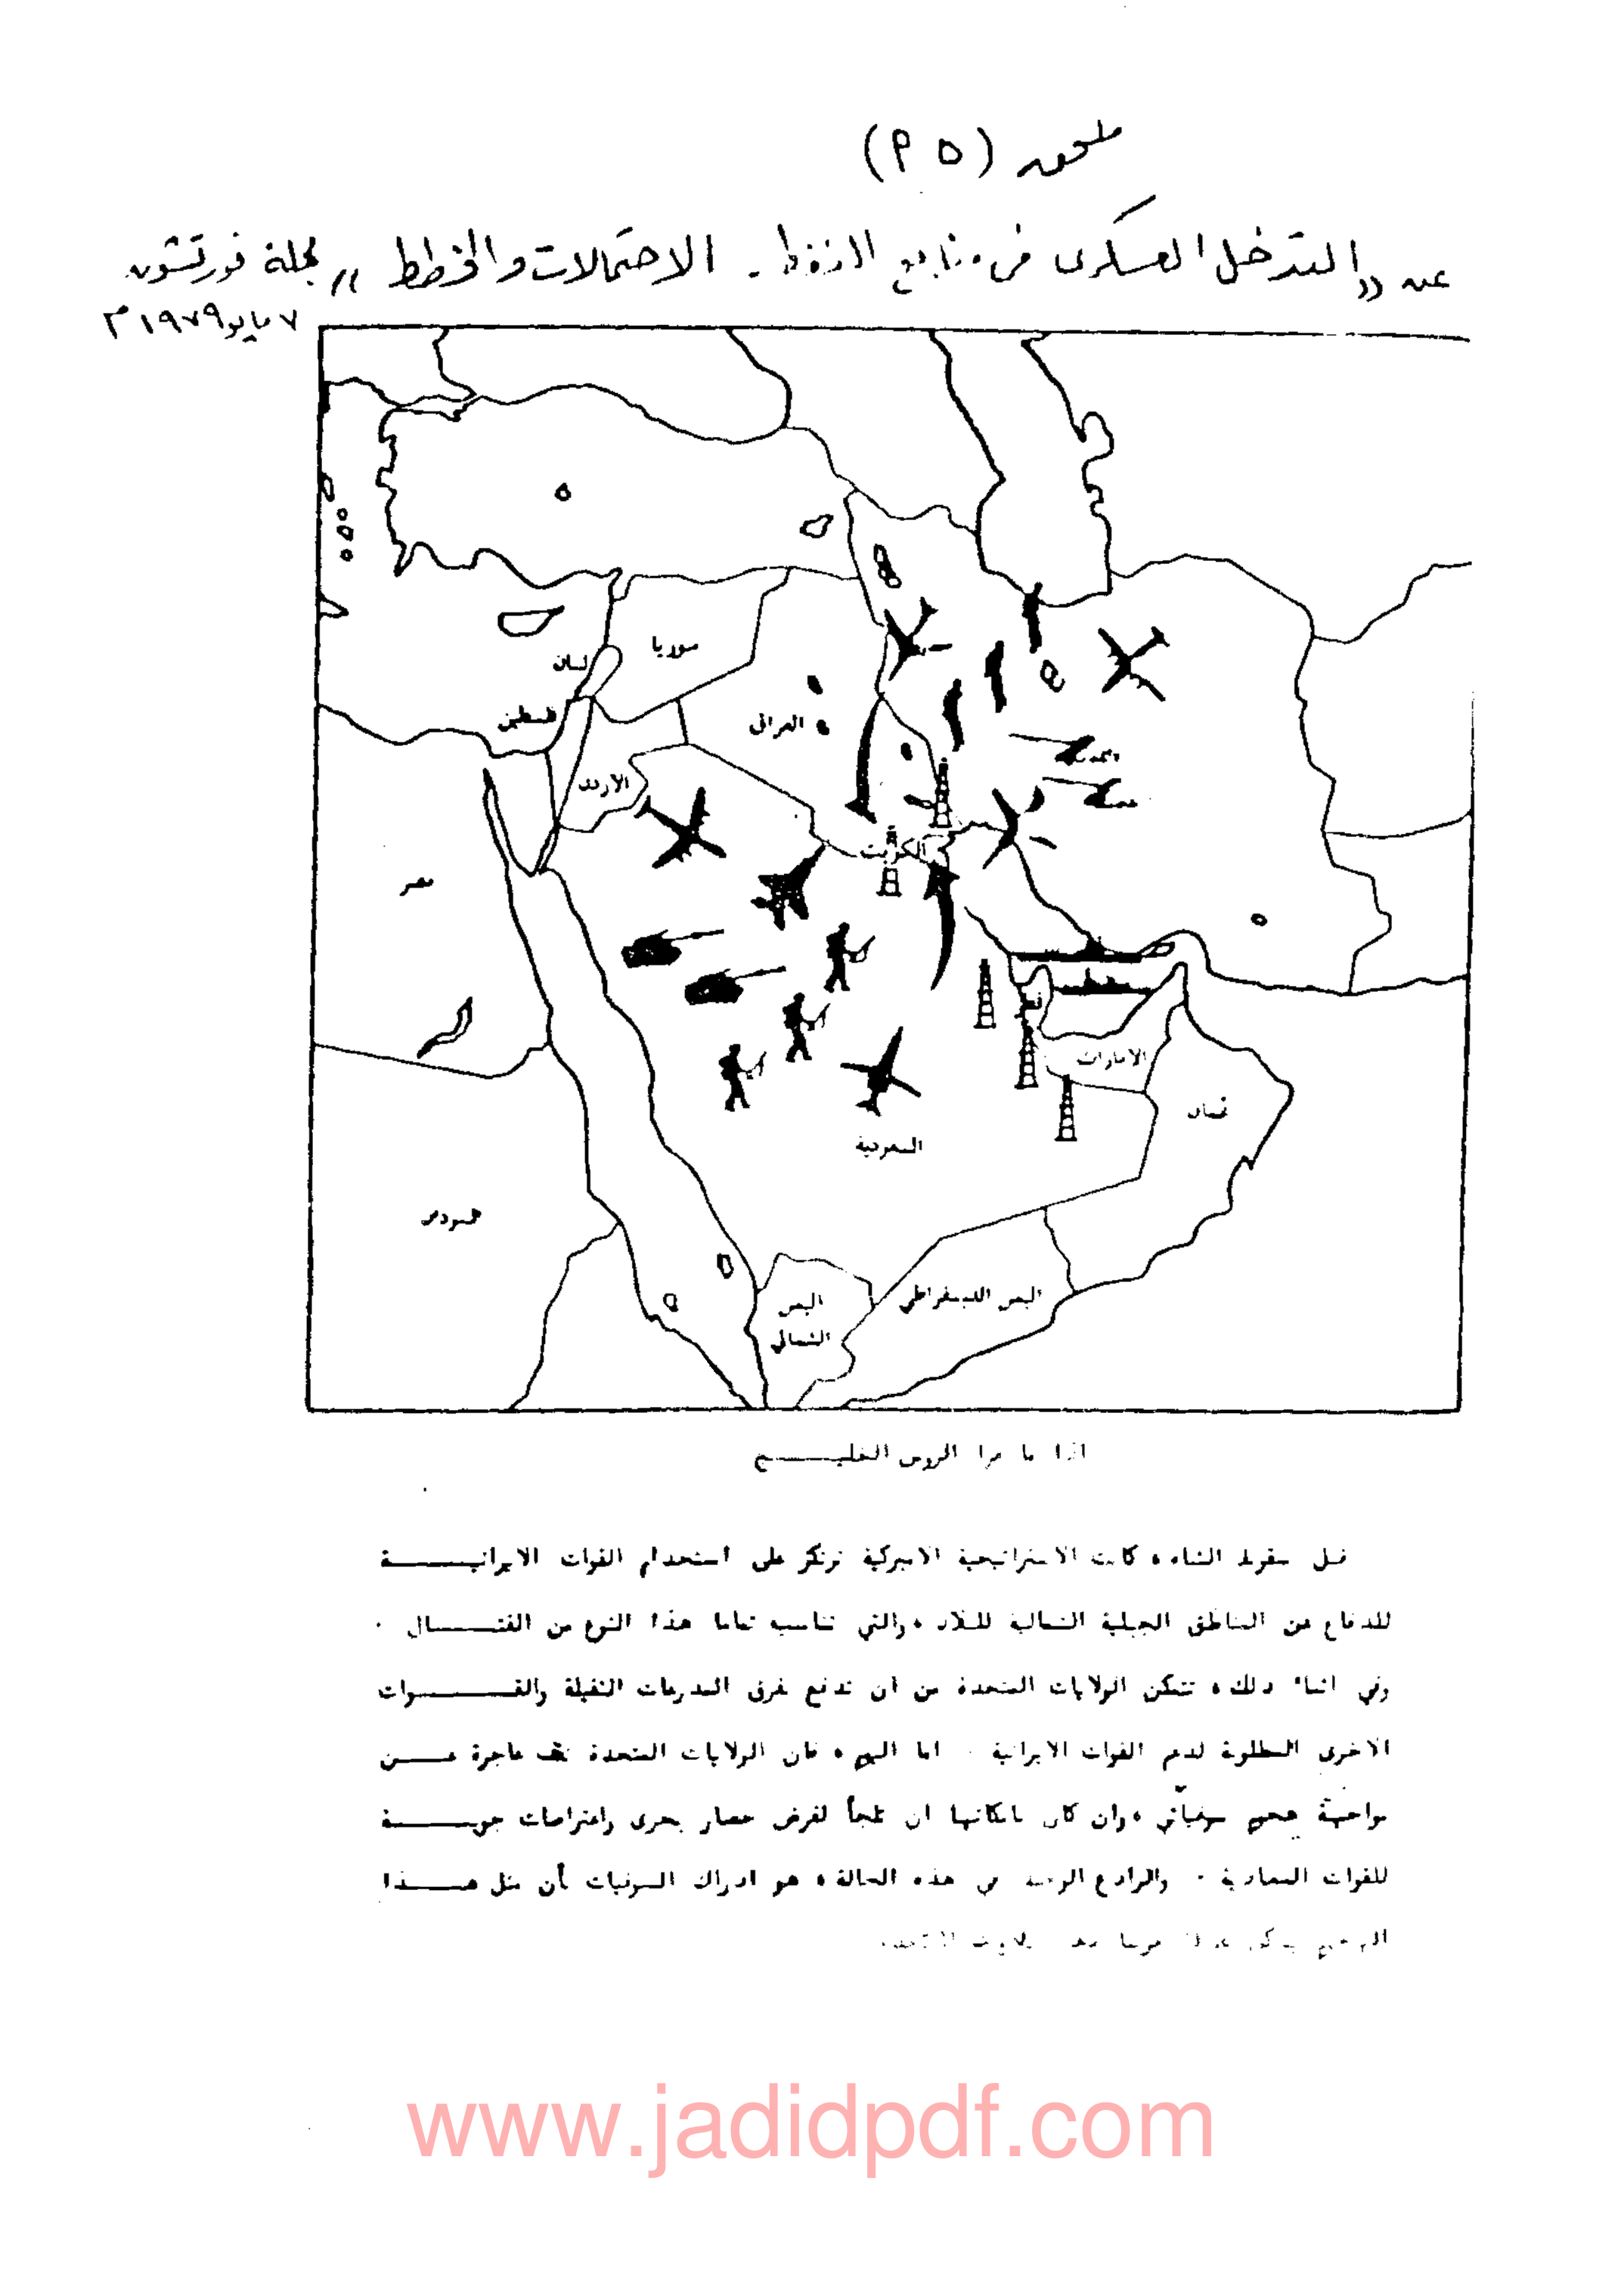 ملحق (٥ م)
عن «التدخل العسكرى فى منابع النفط - الاحتمالات والخطط» مجلة فورتشون
٧ مايو ١٩٧٩ م
سوريا
لبنان
فلسطين
العراق
الاردن
الكويت
مصر
الامارات
عمان
السعودية
اليمن الديمقراطي
اليمن
الشمالي
اذا ما غزا الروس الخليـــج
قبل سقوط الشاه ، كانت الاستراتيجية الاميركية ترتكز على استخدام القوات الايرانيـــة
للدفاع عن المناطق الجبلية الشمالية للبلاد ، والتي تناسب تماما هذا النوع من القتـــال .
وفي اثناء ذلك ، تتمكن الولايات المتحدة من ان تدفع بفرق المدرعات الثقيلة والقـــوات
الاخرى المطلوبة لدعم القوات الايرانية . اما اليوم ، فان الولايات المتحدة تقف عاجزة عـــن
مواجهة هجوم سوفياتي ، وان كان بامكانها ان تلجأ لفرض حصار بحرى واعتراضات جويـــة
للقوات المعادية . والرادع الوحيد في هذه الحالة ، هو ادراك السوفيات بأن مثل هـــذا
الهجوم
www.jadidpdf.com